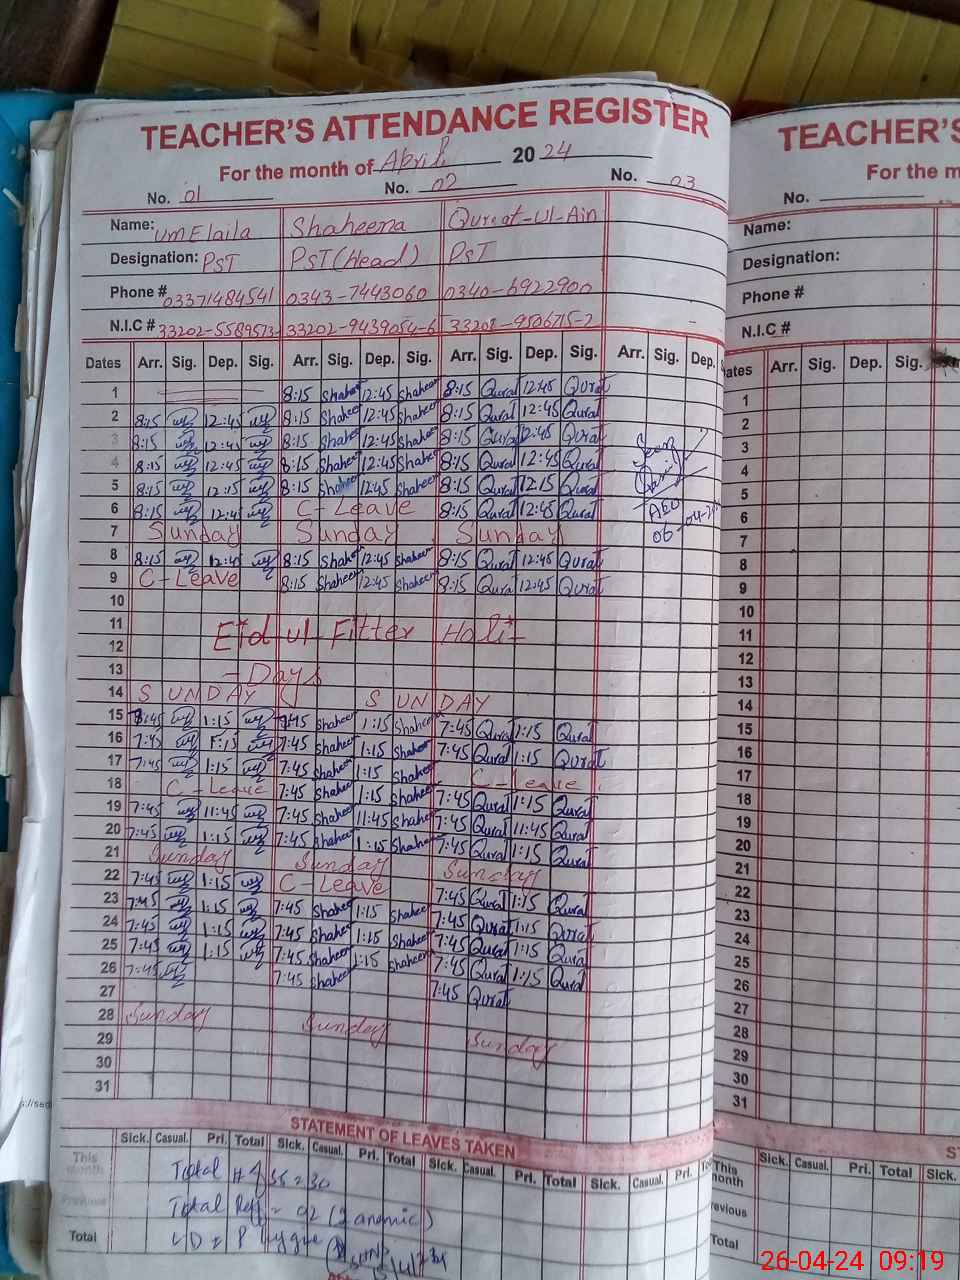 TEACHER'S ATTENDANCE REGISTER
For the month of April 2024
No. 01 No. 02 No. 03
Name: UmElaila Shaheena Qurat-Ul-Ain
Designation: PST PST(Head) PST
Phone # 03371484541 0343-7443060 0340-6922900
N.I.C # 33202-5589573- 33202-9439054-6 33201-9506715-2
Dates Arr. Sig. Dep. Sig. Arr. Sig. Dep. Sig. Arr. Sig. Dep. Sig. Arr. Sig. Dep.
1 8:15 Shaheen 12:45 Shaheen 8:15 Qurat 12:45 Qurat
2 8:15 12:45 8:15 Shaheen 12:45 Shaheen 8:15 Qurat 12:45 Qurat
3 8:15 12:45 8:15 Shaheen 12:45 Shaheen 8:15 Qurat 12:45 Qurat
4 8:15 12:45 8:15 Shaheen 12:45 Shaheen 8:15 Qurat 12:45 Qurat
5 8:15 12:15 8:15 Shaheen 12:45 Shaheen 8:15 Qurat 12:15 Qurat
6 8:15 12:45 C-Leave 8:15 Qurat 12:45 Qurat
AEO
06-04-24
7 Sunday Sunday Sunday
8 8:15 12:45 8:15 Shaheen 12:45 Shaheen 8:15 Qurat 12:45 Qurat
9 C-Leave 8:15 Shaheen 12:45 Shaheen 8:15 Qurat 12:45 Qurat
10
11 Eid ul-Fitter Holi-
12
13 -Days
14 SUNDAY SUNDAY
15 7:45 1:15 7:45 Shaheen 1:15 Shaheen 7:45 Qurat 1:15 Qurat
16 7:45 1:15 7:45 Shaheen 1:15 Shaheen 7:45 Qurat 1:15 Qurat
17 7:45 1:15 7:45 Shaheen 1:15 Shaheen C-Leave
18 C-Leave 7:45 Shaheen 1:15 Shaheen 7:45 Qurat 1:15 Qurat
19 7:45 11:45 7:45 Shaheen 11:45 Shaheen 7:45 Qurat 11:45 Qurat
20 7:45 1:15 7:45 Shaheen 1:15 Shaheen 7:45 Qurat 1:15 Qurat
21 Sunday Sunday Sunday
22 7:45 1:15 C-Leave 7:45 Qurat 1:15 Qurat
23 7:45 1:15 7:45 Shaheen 1:15 Shaheen 7:45 Qurat 1:15 Qurat
24 7:45 1:15 7:45 Shaheen 1:15 Shaheen 7:45 Qurat 1:15 Qurat
25 7:45 1:15 7:45 Shaheen 1:15 Shaheen 7:45 Qurat 1:15 Qurat
26 7:45 7:45 Shaheen 7:45 Qurat
27
28 Sunday Sunday Sunday
29
30
31
STATEMENT OF LEAVES TAKEN
Sick. Casual. Pri. Total Sick. Casual. Pri. Total Sick. Casual. Pri. Total Sick. Casual. Pri.
This month
Previous
Total
Total # of SS = 30
Total Reff = 02 (2 anemic)
TEACHER'S
For the m
No.
Name:
Designation:
Phone #
N.I.C #
ates Arr. Sig. Dep. Sig.
1
2
3
4
5
6
7
8
9
10
11
12
13
14
15
16
17
18
19
20
21
22
23
24
25
26
27
28
29
30
31
ST
Sick. Casual. Pri. Total Sick.
This month
revious
Total
26-04-24 09:19